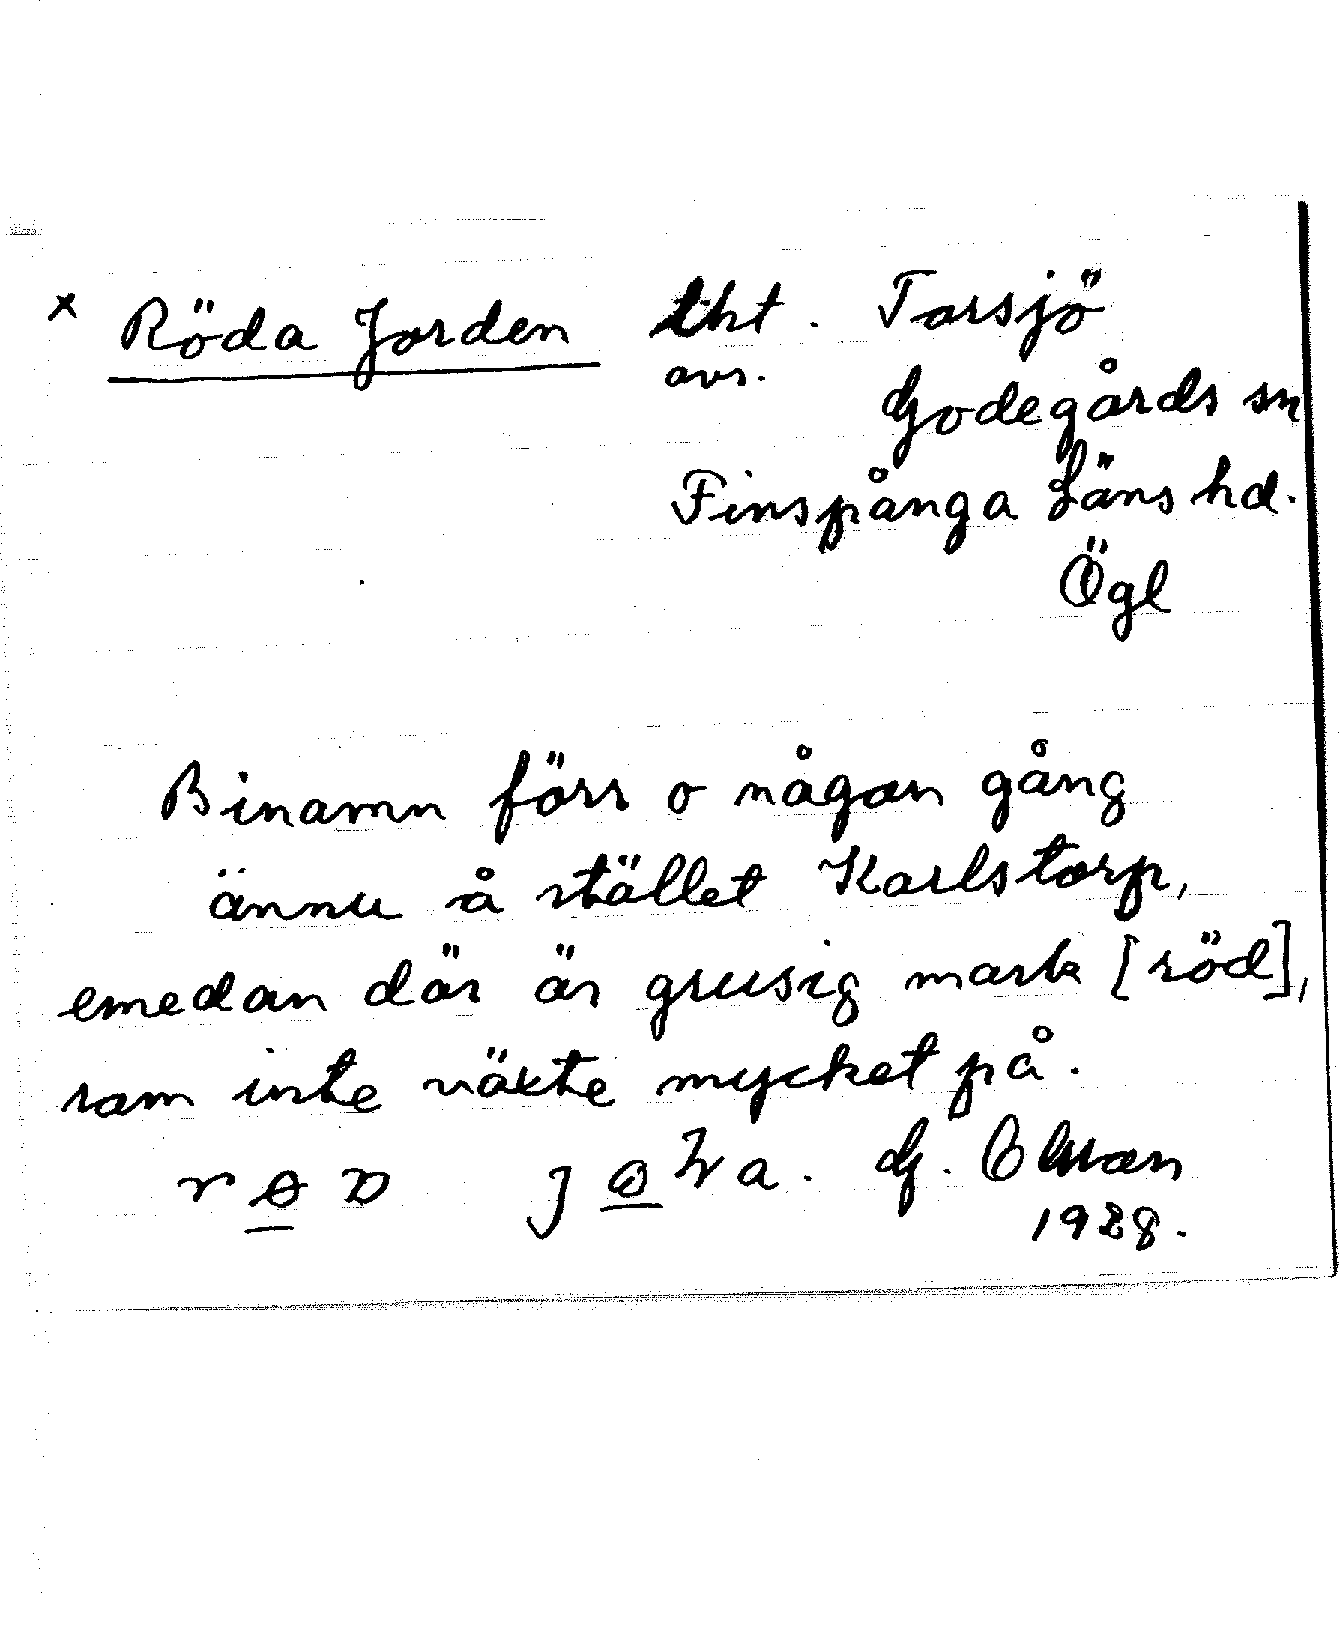 x Röda Jorden lht. Torsjö
avs. Godegårds sn
Finspånga Läns hd.
Ögl
Binamn förr o någon gång
ännu å stället Karlstorp,
emedan där är grusig mark [röd],
som inte växte mycket på.
G. Olsson
1928.